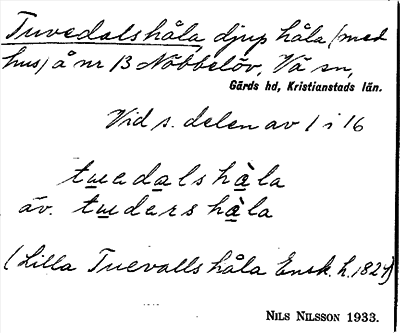 Tuvedalshåla, djup håla (med
hus) å nr 13 Nöbbelöv, Vä sn,
Gärds hd, Kristianstads län.
Vid s. delen av 1 i 16
tuedalshàla
äv. tudarshàla
(Lilla Tuevallshåla Ensk. h. 1824)
NILS NILSSON 1933.